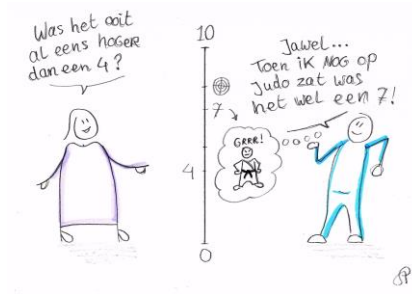 Was het ooit
al eens hoger
dan een 4?
10
7
4
0
Jawel...
Toen ik NOG op
judo zat was
het wel een 7!
GRRR!
SP